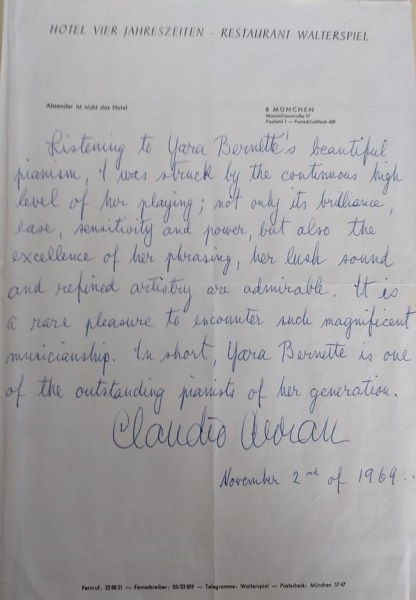 HOTEL VIER JAHRESZEITEN · RESTAURANT WALTERSPIEL
Absender ist nicht das Hotel
8 MÜNCHEN
Maximilianstraße 17
Postamt 1 — Postschließfach 429
Listening to Yara Bernette's beautiful
pianism, I was struck by the continuous high
level of her playing; not only its brilliance,
ease, sensitivity and power, but also the
excellence of her phrasing, her lush sound
and refined artistry are admirable. It is
a rare pleasure to encounter such magnificent
musicianship. In short, Yara Bernette is one
of the outstanding pianists of her generation.
Claudio Arrau
November 2nd of 1969
Fernruf: 22 88 21 — Fernschreiber: 05/23 859 — Telegramme: Walterspiel — Postscheck: München 57 47